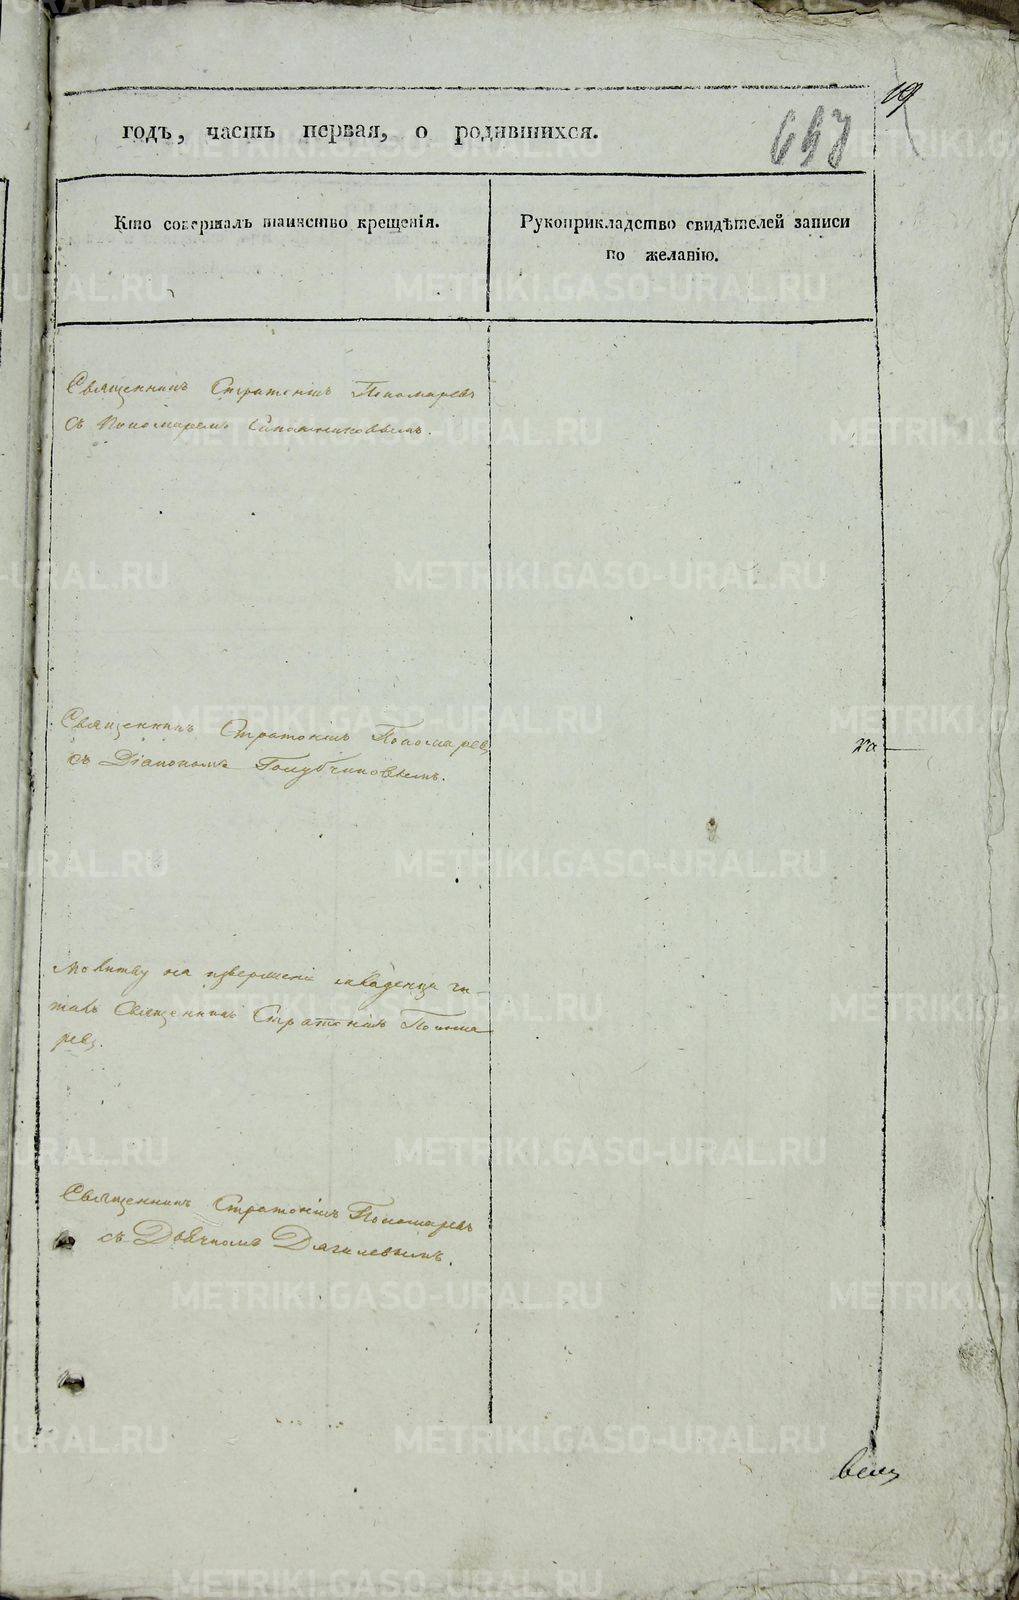 19
годъ, часть первая, о родившихся.
Кто совершалъ таинство крещенія.
Рукоприкладство свидѣтелей записи
по желанію.
Священникъ Стратоникъ Пономаревъ
съ Пономаремъ
Священникъ Стратоникъ Пономаревъ
съ Діакономъ Голубчиковымъ.
Молитву на изверженіе младенца чи-
талъ Священникъ Стратоникъ Понома
ревъ.
Священникъ Стратоникъ Пономаревъ
съ Дьячкомъ Дягилевымъ.
METRIKI.GASO-URAL.RU